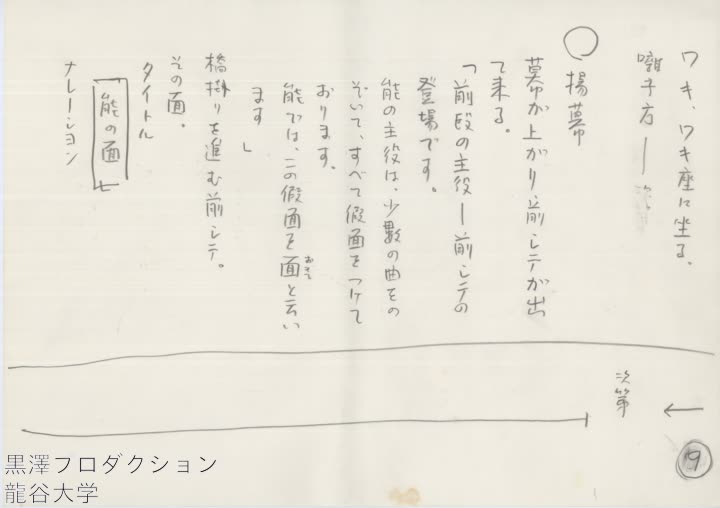 ワキ、ワキ座に坐る。
囃子方―次。
○揚幕
幕が上がり前シテが出
て来る。
「前段の主役―前シテの
登場です。
能の主役は、少數の曲をの
ぞいて、すべて假面をつけて
おります。
能では、この假面を面と云い
おもて
ます」
橋掛りを進む前シテ。
その面。
タイトル
「能の面」七
ナレーション
次第
←
19
黒澤プロダクション
龍谷大学